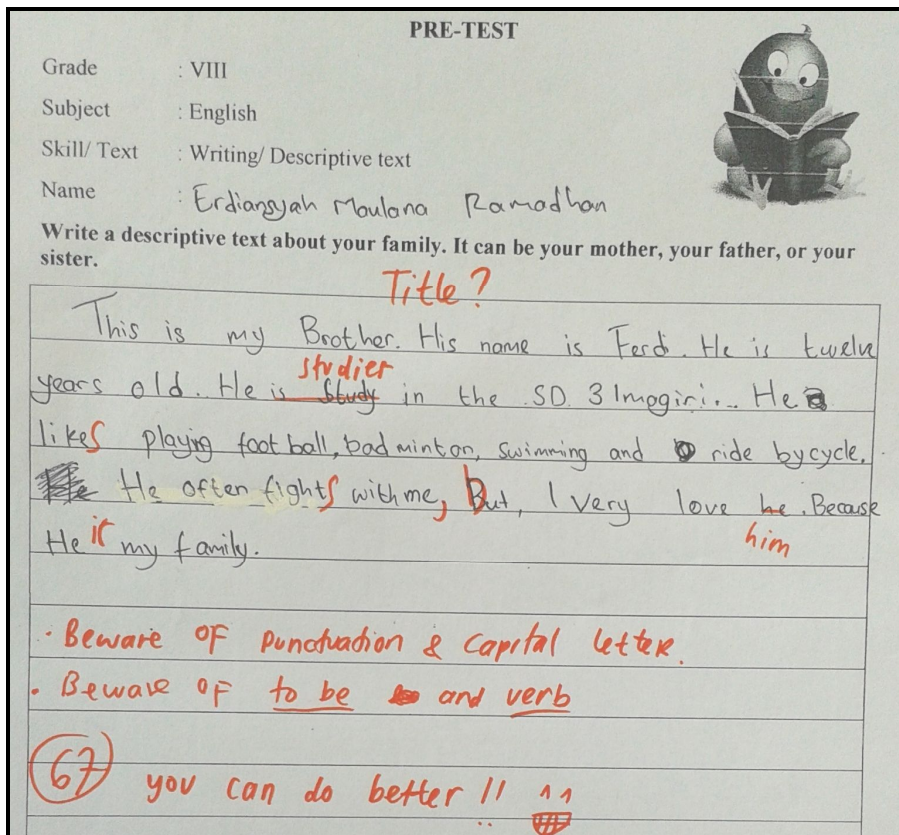 PRE-TEST
Grade : VIII
Subject : English
Skill/ Text : Writing/ Descriptive text
Name : Erdiansyah Maulana Ramadhan
Write a descriptive text about your family. It can be your mother, your father, or your
sister.
Title?
This is my Brother. His name is Ferdi. He is twelve
studies
years old. He is study in the SD. 3 Imogiri... He
likes playing foot ball, bad minton, swimming and ride bycycle.
He often fights with me, But, I very love he. Because
him
He is my family.
. Beware OF punctuation & capital letter.
. Beware OF to be and verb
67 you can do better !! ^^